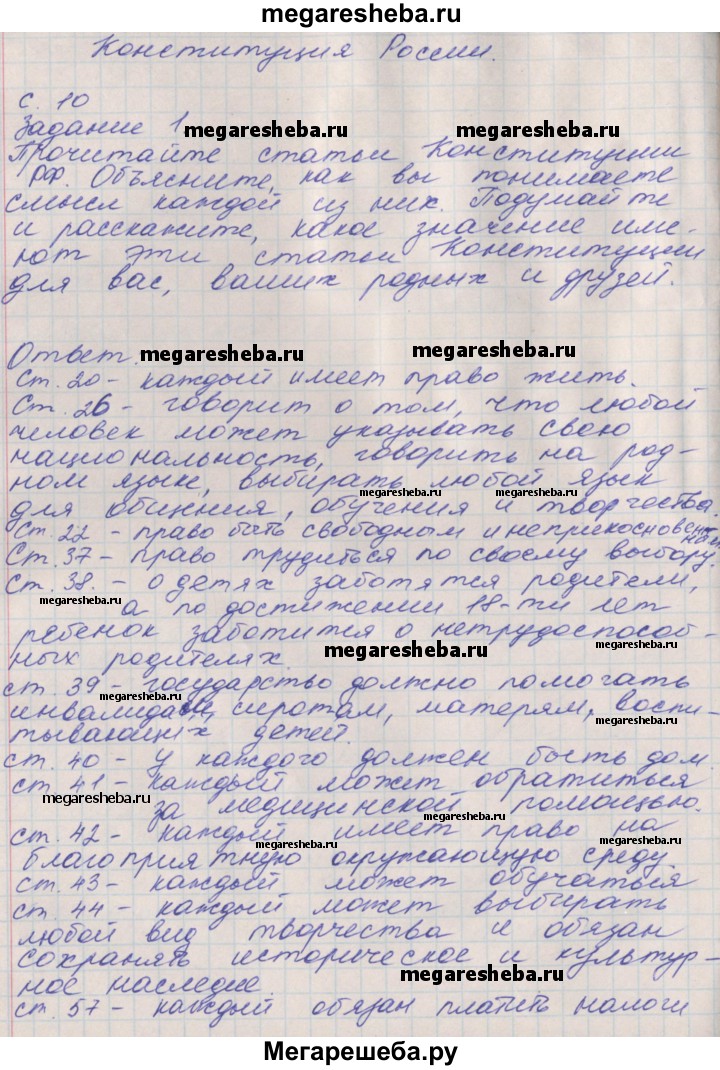 megaresheba.ru
Конституция России.
с. 10
Задание 1 megaresheba.ru megaresheba.ru
Прочитайте статьи Конституции
РФ. Объясните, как вы понимаете
смысл каждой из них. Подумайте
и расскажите, какое значение име-
ют эти статьи Конституции
для вас, ваших родных и друзей.
Ответ. megaresheba.ru megaresheba.ru
Ст. 20 - каждый имеет право жить.
Ст. 26 - говорит о том, что любой
человек может указывать свою
национальность, говорить на род-
ном языке, выбирать любой язык
megaresheba.ru megaresheba.ru
для общения, обучения и творчества.
Ст. 22 - право быть свободным и неприкосновенным
Ст. 37 - право трудиться по своему выбору.
megaresheba.ru
Ст. 38. - о детях заботятся родители,
megaresheba.ru megaresheba.ru
а по достижении 18-ти лет
ребенок заботится о нетрудоспособ-
ных родителях. megaresheba.ru megaresheba.ru
ст. 39 - государство должно помогать
megaresheba.ru megaresheba.ru
инвалидам, сиротам, матерям, воспи-
megaresheba.ru
тывающих детей.
ст. 40 - у каждого должен быть дом.
ст. 41 - каждый может обратиться
megaresheba.ru megaresheba.ru
за медицинской помощью.
ст. 42 - каждый имеет право на
megaresheba.ru megaresheba.ru
благоприятную окружающую среду
ст. 43 - каждый может обучаться
ст. 44 - каждый может выбирать
любой вид творчества и обязан
сохранять историческое и культур-
ное наследие. megaresheba.ru
ст. 57 - каждый обязан платить налоги
Мегарешеба.ру